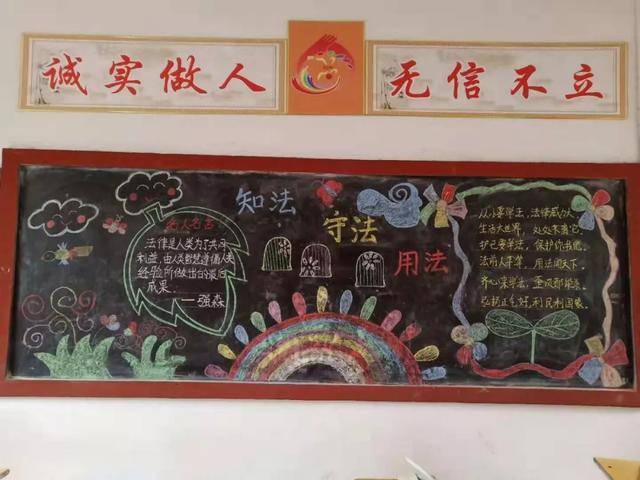 诚实做人
无信不立
名人名言
法律是人类为了共同
利益,由人类智慧遵循人类
经验所做出的最后
成果。
——强森
知法
守法
用法
从小要学法,法律威力大,
生活大世界,处处未离它,
护己要学法,保护你我他,
法前人平等,用法闯天下。
齐心来学法,
弘扬正气好,利民利国家。